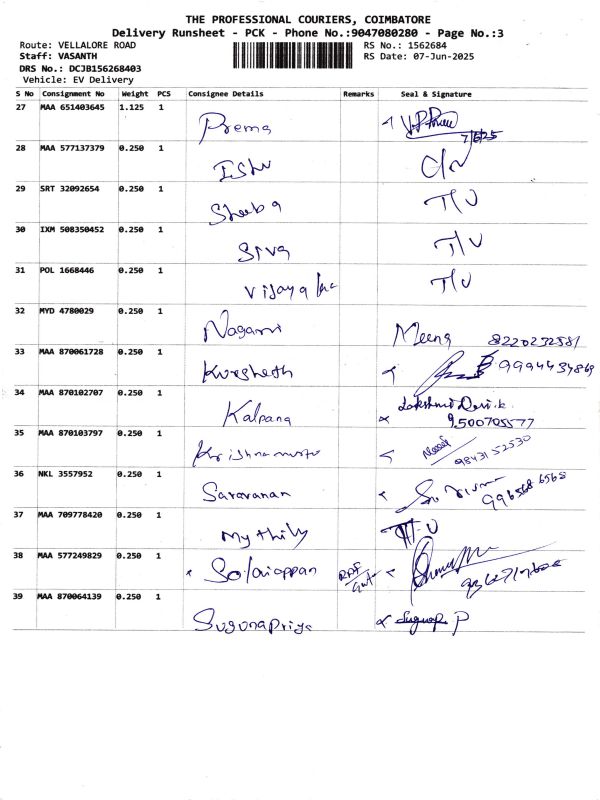 THE PROFESSIONAL COURIERS, COIMBATORE
Delivery Runsheet - PCK - Phone No.:9047080280 - Page No.:3
Route: VELLALORE ROAD RS No.: 1562684
Staff: VASANTH RS Date: 07-Jun-2025
DRS No.: DCJB156268403
Vehicle: EV Delivery
S No Consignment No Weight PCS Consignee Details Remarks Seal & Signature
27 MAA 651403645 1.125 1 Prema 7/6/25
28 MAA 577137379 0.250 1 Ishu
29 SRT 32092654 0.250 1 Sheeba T/U
30 IXM 508350452 0.250 1 Siva T/U
31 POL 1668446 0.250 1 T/U
32 MYD 4780029 0.250 1 Meena 8220232581
33 MAA 870061728 0.250 1 Kursheeth 9994434869
34 MAA 870102707 0.250 1 Kalpana Lakshmi Devi.k
9500705577
35 MAA 870103797 0.250 1 9843152530
36 NKL 3557952 0.250 1 Saravanan
37 MAA 709778420 0.250 1 Mythily T-U
38 MAA 577249829 0.250 1 Solaiappan
39 MAA 870064139 0.250 1 SugunaPriya P